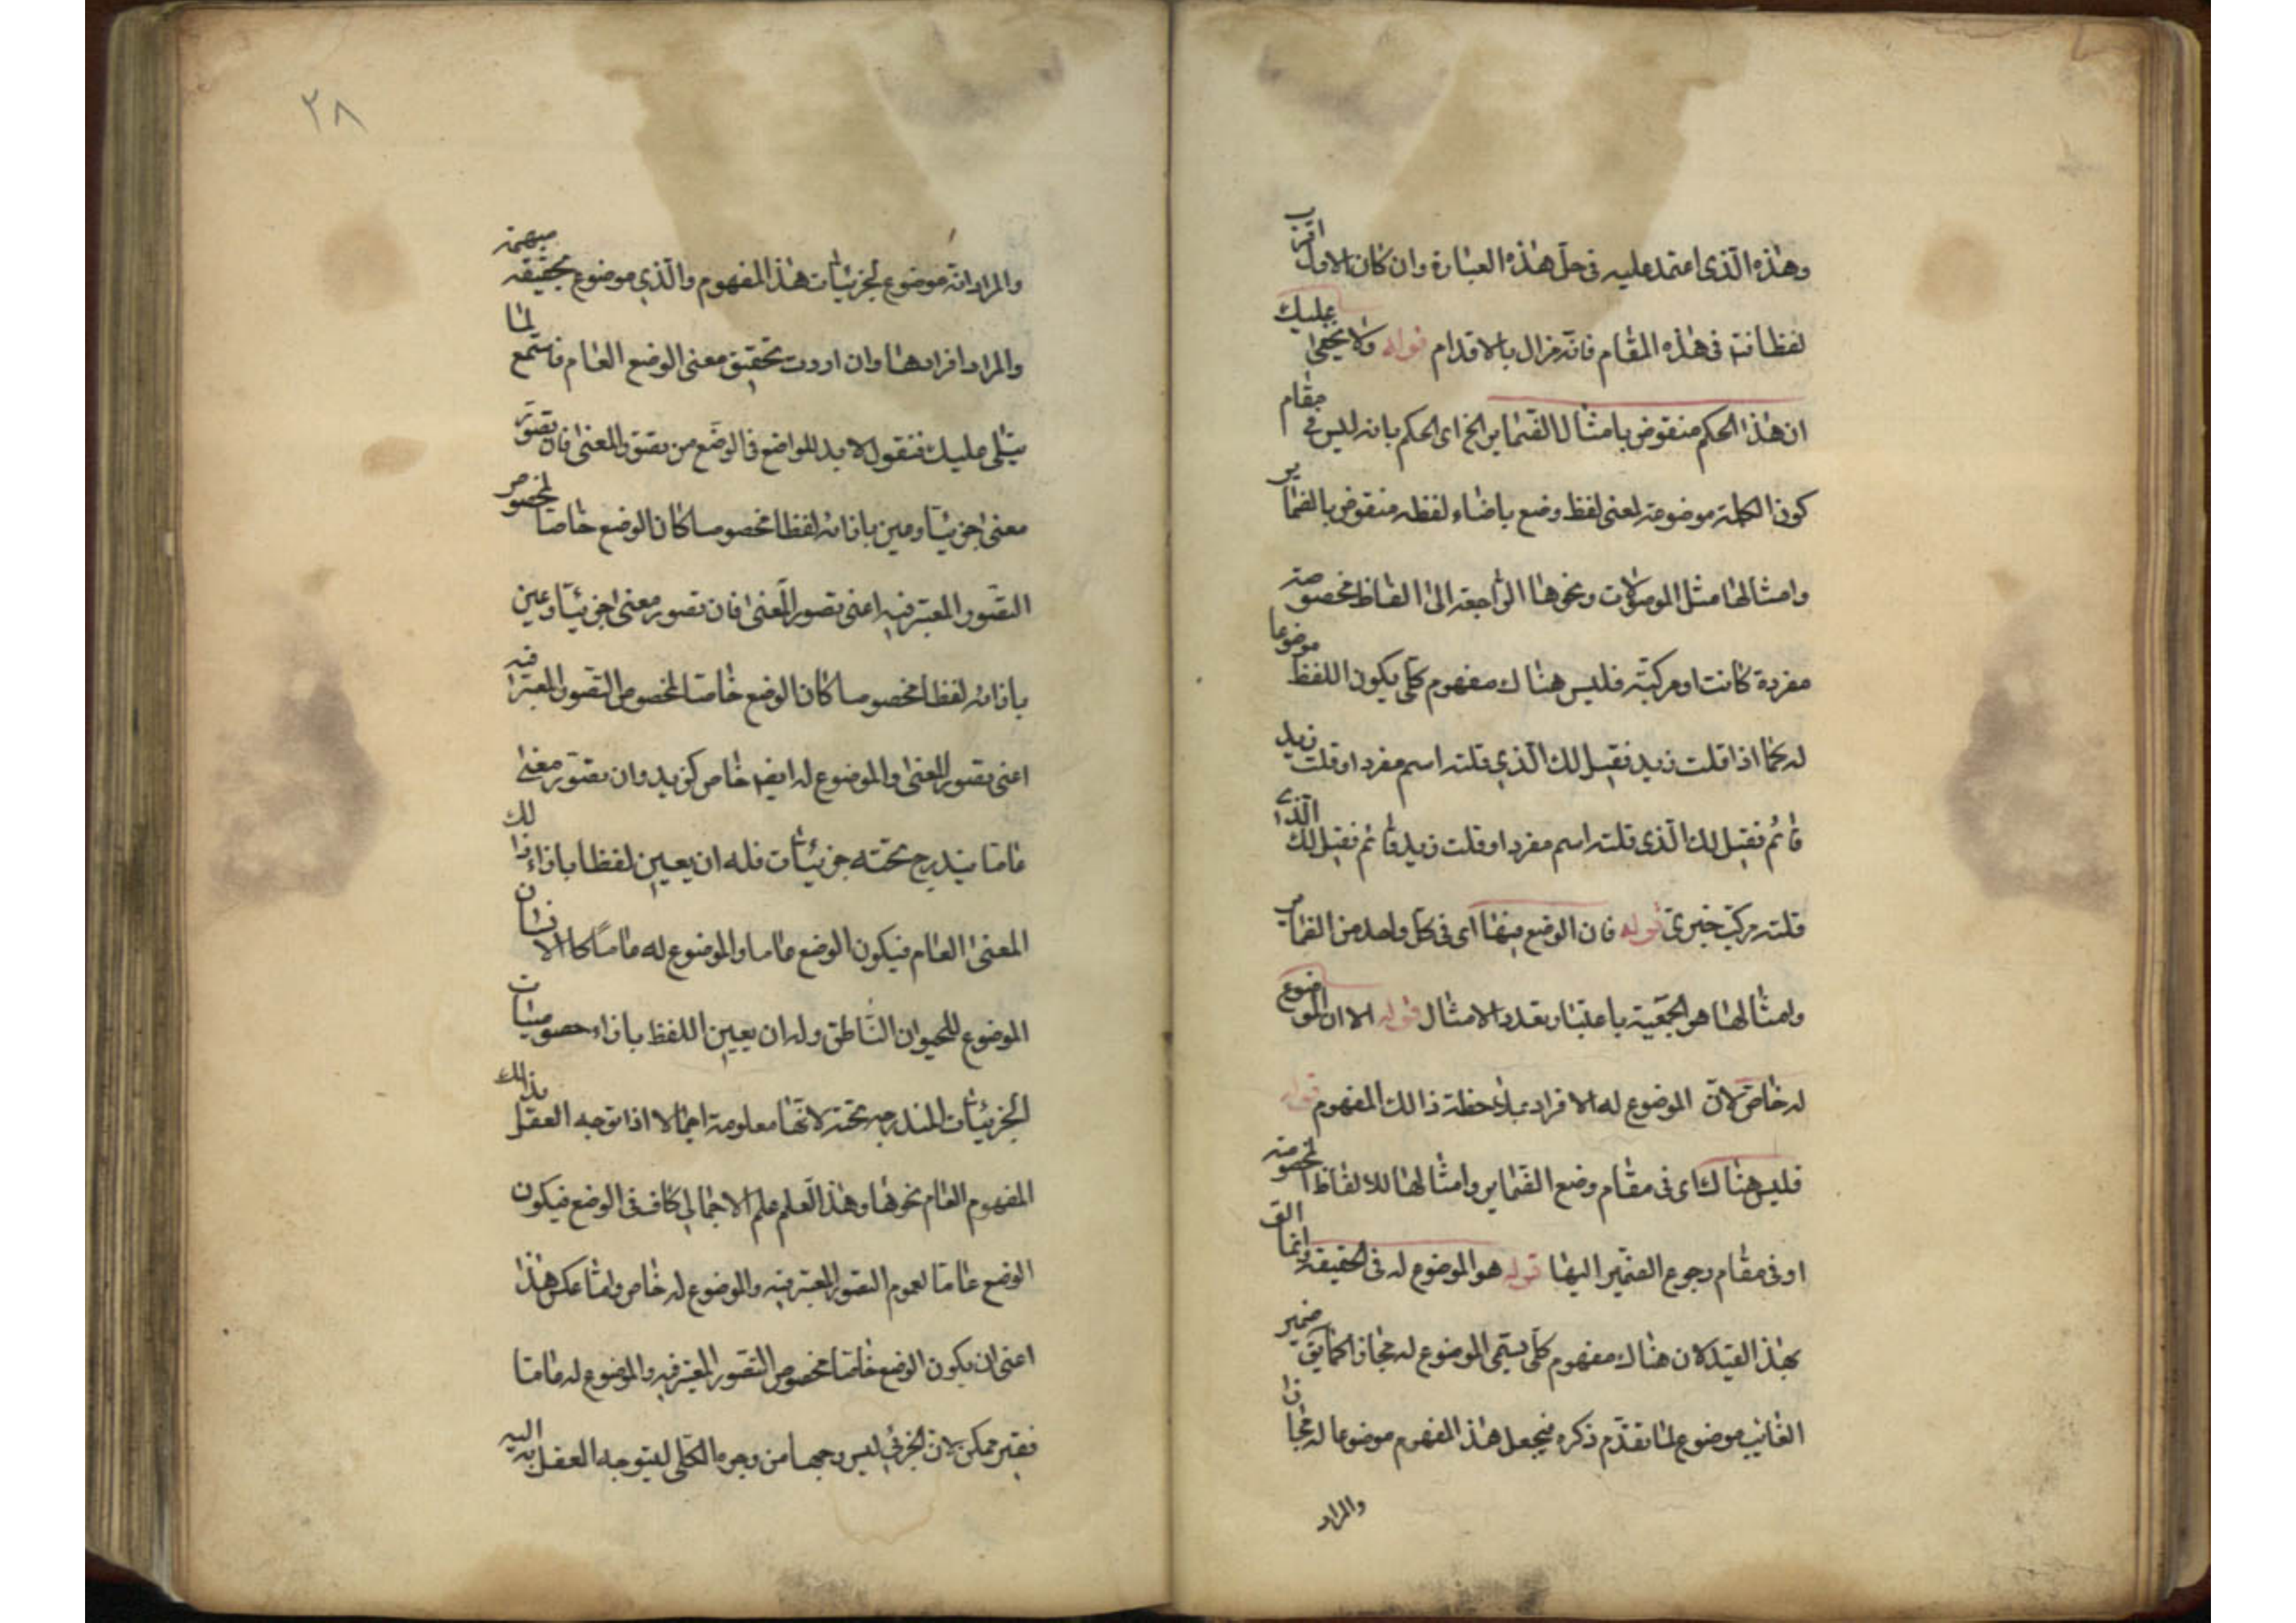 وهذه الّذى اعتمد عليه فى حلّ هذه العبارة وان كان الاول اقرب
لفظا فى هذه المقام فانّه مزال بالاقدام قوله ولا يخفى عليك
ان هذا الحكم منقوض بامثال الضماير الخ اى الحكم بانه ليس فى مقام
كون الكلمة موضوعة لمعنى لفظ وضع باضاء لفظه منقوض بالضماير
وامثالها مثل الموصولات ونحوها الراجعة الى الفاظ مخصوصة
مفردة كانت او مركبّة فليس هناك مفهوم كلّى يكون اللفظ موضوعا
له كما اذا قلت زيد فقيل لك الّذي قلته اسم مفرد او قلت زيد
قائم فقيل لك الّذى قلته اسم مفرد او قلت زيد قائم فقيل لك الّذى
قلته مركب خبرىّ قوله فان الوضع فيها اى فى كلّ واحد من الضماير
وامثالها هو الجمعية باعتبار تعدد الامثال قوله الا ان الموضوع
له خاصّ لانّ الموضوع له الافراد بملاحظة ذالك المفهوم قوله
فليس هناك اى فى مقام وضع الضماير وامثالها للالفاظ المخصوصة
او فى مقام رجوع الضمير اليها قوله هو الموضوع له فى الحقيقة وانما الق
بهذا القيد لان هناك مفهوم كلّى يسمّى الموضوع له مجازا كما يق ضمير
الغائب موضوع لما تقدّم ذكره فيجعل هذا المفهوم موضوعا له مجازا
والمراد
٢٨
والمراد انّه موضوع لجزئيات هذا المفهوم والّذي موضوع لحقيقه مبهمة
والمراد افرادها وان اردت تحقيق معنى الوضع العام فاستمع لما
يتلى عليك فنقول لا بد للواضع فى الوضع من تصوّر المعنى فان تصوّر
معنى جزئيّا وعين بازائه لفظا مخصوصا كان الوضع خاصا لخصوص
التصّور المعتبر فيه اعنى تصور المعنى فان تصور معنى جزئيّا وعين
بازائه لفظا مخصوصا كان الوضع خاصّا لخصوص التصّور المعتبر فيه
اعنى تصور المعنى والموضوع له ايضا خاص كزيد وان تصوّر معنى
عامّا يندرج تحته جزئيّات فله ان يعيين لفظا بازاء ذالك
المعنى العام فيكون الوضع عاما والموضوع له عامّا كالانسان
الموضوع للحيوان النّاطق وله ان يعيين اللفظ بازاء خصوصيّات
الجزئيّات المندرجه تحته لانّها معلومة اجمالا اذا توجه العقل بذالك
المفهوم العام نحوها وهذا العلم علم الاجمالى كاف فى الوضع فيكون
الوضع عامّا لعموم التصور المعتبر فيه والموضوع له خاص وامّا عكس هذا
اعنى ان يكون الوضع خاصّا لخصوص التصور المعتبر فيه والموضوع له عامّا
فغير ممكن لان الجزئى ليس وجها من وجوه الكلّى ليتوجه العقل به اليه